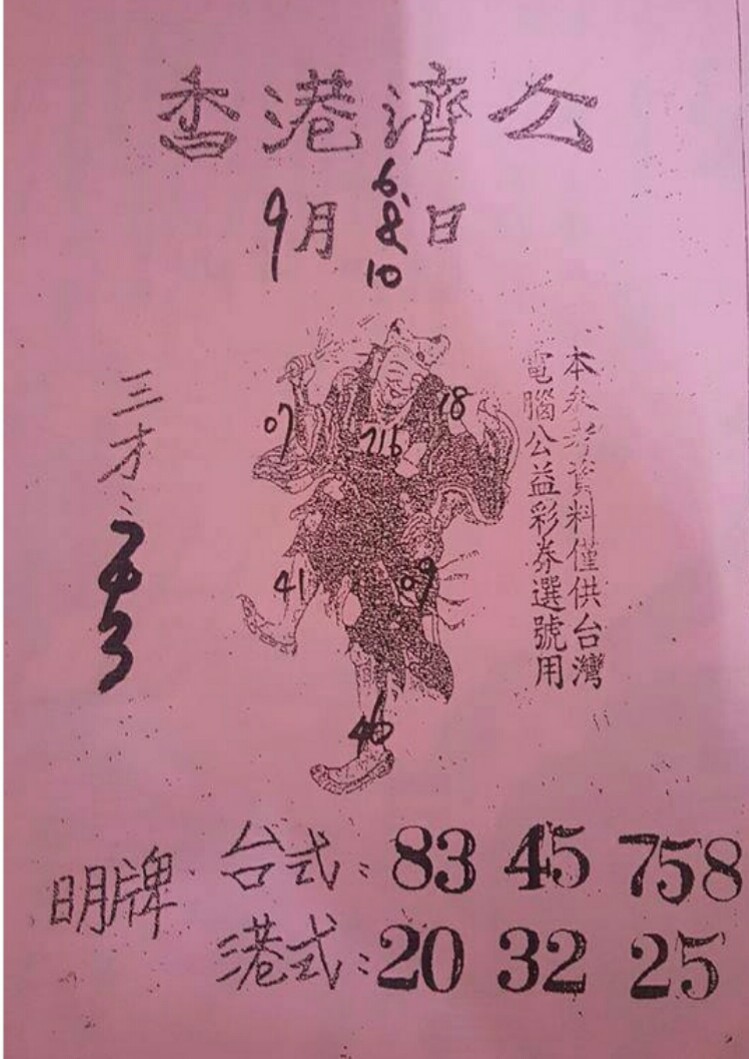 香港濟公
9月 6.8.10 日
本參考資料僅供台灣
電腦公益彩券選號用
三才:
3
07
18
716
41
09
46
明牌
台式: 83 45 758
港式: 20 32 25